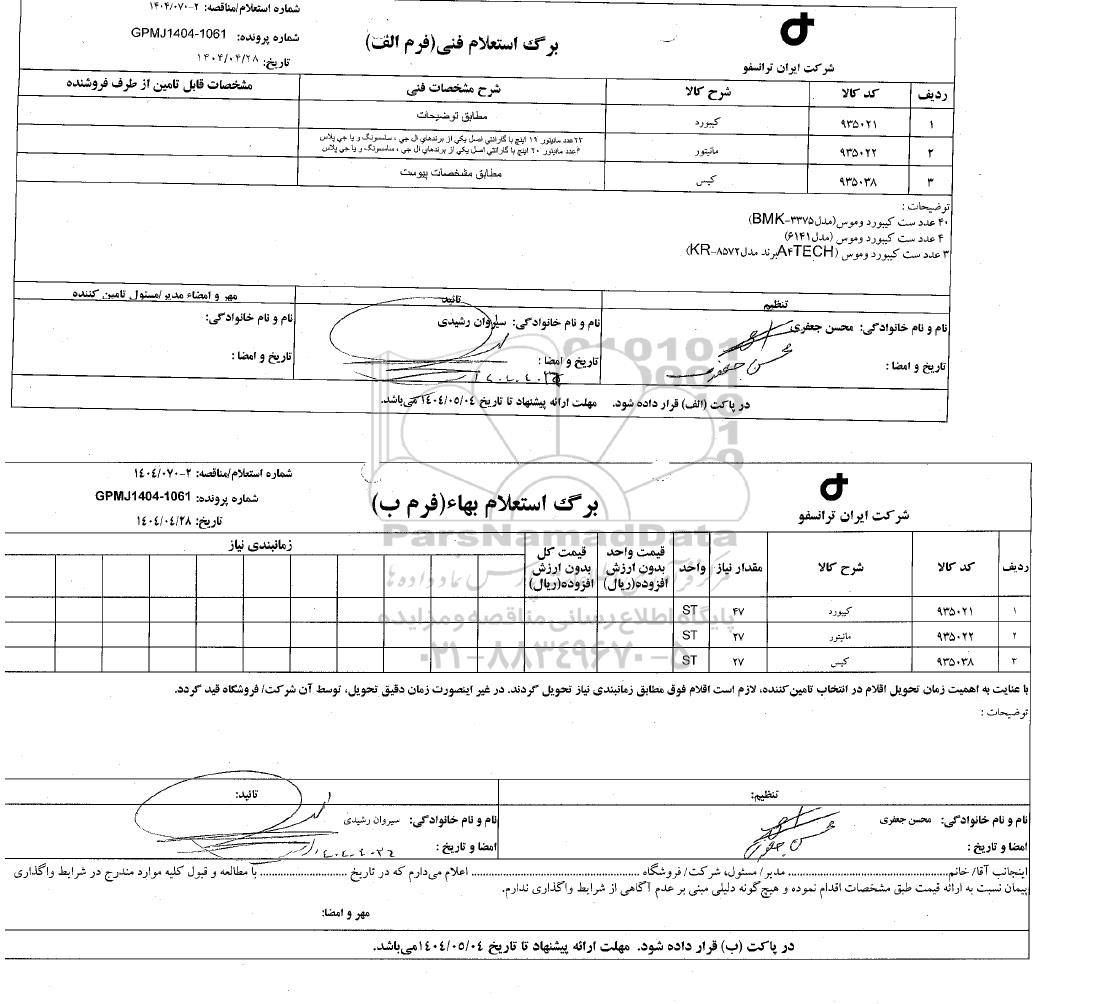 شماره استعلام/مناقصه: ۱۴۰۴/۰۷۰-۲
شماره پرونده: GPMJ1404-1061
تاریخ: ۱۴۰۴/۰۴/۲۸
برگ استعلام فنی(فرم الف)
شرکت ایران ترانسفو
ردیف کد کالا شرح کالا شرح مشخصات فنی مشخصات قابل تامین از طرف فروشنده
۱ ۹۳۵۰۲۱ کیبورد مطابق توضیحات
۲ ۹۳۵۰۲۲ مانیتور ۲۳عدد مانیتور ۱۹ اینچ با گارانتی اصل یکی از برندهای ال جی ، سامسونگ و یا جی پلاس
۶عدد مانیتور ۲۰ اینچ با گارانتی اصل یکی از برندهای ال جی ، سامسونگ و یا جی پلاس
۳ ۹۳۵۰۳۸ کیس مطابق مشخصات پیوست
توضیحات :
۴۰ عدد ست کیبورد وموس(مدل۳۳۷۵-BMK)
۴ عدد ست کیبورد وموس (مدل۶۱۴۱)
۳ عدد ست کیبورد وموس (A۴TECHبرند مدل۸۵۷۲-KR)
تنظیم تائید مهر و امضاء مدیر/مسئول تامین کننده
نام و نام خانوادگی: محسن جعفری نام و نام خانوادگی: سیروان رشیدی نام و نام خانوادگی:
تاریخ و امضا : محسن جعفری تاریخ و امضا : تاریخ و امضا :
در پاکت (الف) قرار داده شود. مهلت ارائه پیشنهاد تا تاریخ ۱۴۰۴/۰۵/۰۴می‌باشد.
شماره استعلام/مناقصه: ۱۴۰۴/۰۷۰-۲
شماره پرونده: GPMJ1404-1061
تاریخ: ۱۴۰۴/۰۴/۲۸
برگ استعلام بهاء(فرم ب)
شرکت ایران ترانسفو
ParsNamadData
پایگاه اطلاع رسانی مناقصه و مزایده
۰۲۱-۸۸۳۴۹۶۷۰-۵
ردیف کد کالا شرح کالا مقدار نیاز واحد قیمت واحد بدون ارزش افزوده(ریال) قیمت کل بدون ارزش افزوده(ریال) زمانبندی نیاز
۱ ۹۳۵۰۲۱ کیبورد ۴۷ ST
۲ ۹۳۵۰۲۲ مانیتور ۲۷ ST
۳ ۹۳۵۰۳۸ کیس ۲۷ ST
با عنایت به اهمیت زمان تحویل اقلام در انتخاب تامین‌کننده، لازم است اقلام فوق مطابق زمانبندی نیاز تحویل گردند. در غیر اینصورت زمان دقیق تحویل، توسط آن شرکت/ فروشگاه قید گردد.
توضیحات :
تنظیم: تائید:
نام و نام خانوادگی: محسن جعفری نام و نام خانوادگی: سیروان رشیدی
امضا و تاریخ : محسن جعفری امضا و تاریخ :
اینجانب آقا/ خانم........................ مدیر/ مسئول، شرکت/ فروشگاه ........................ اعلام می‌دارم که در تاریخ ........................ با مطالعه و قبول کلیه موارد مندرج در شرایط واگذاری
پیمان نسبت به ارائه قیمت طبق مشخصات اقدام نموده و هیچ‌گونه دلیلی مبنی بر عدم آگاهی از شرایط واگذاری ندارم.
مهر و امضا:
در پاکت (ب) قرار داده شود. مهلت ارائه پیشنهاد تا تاریخ ۱۴۰۴/۰۵/۰۴می‌باشد.